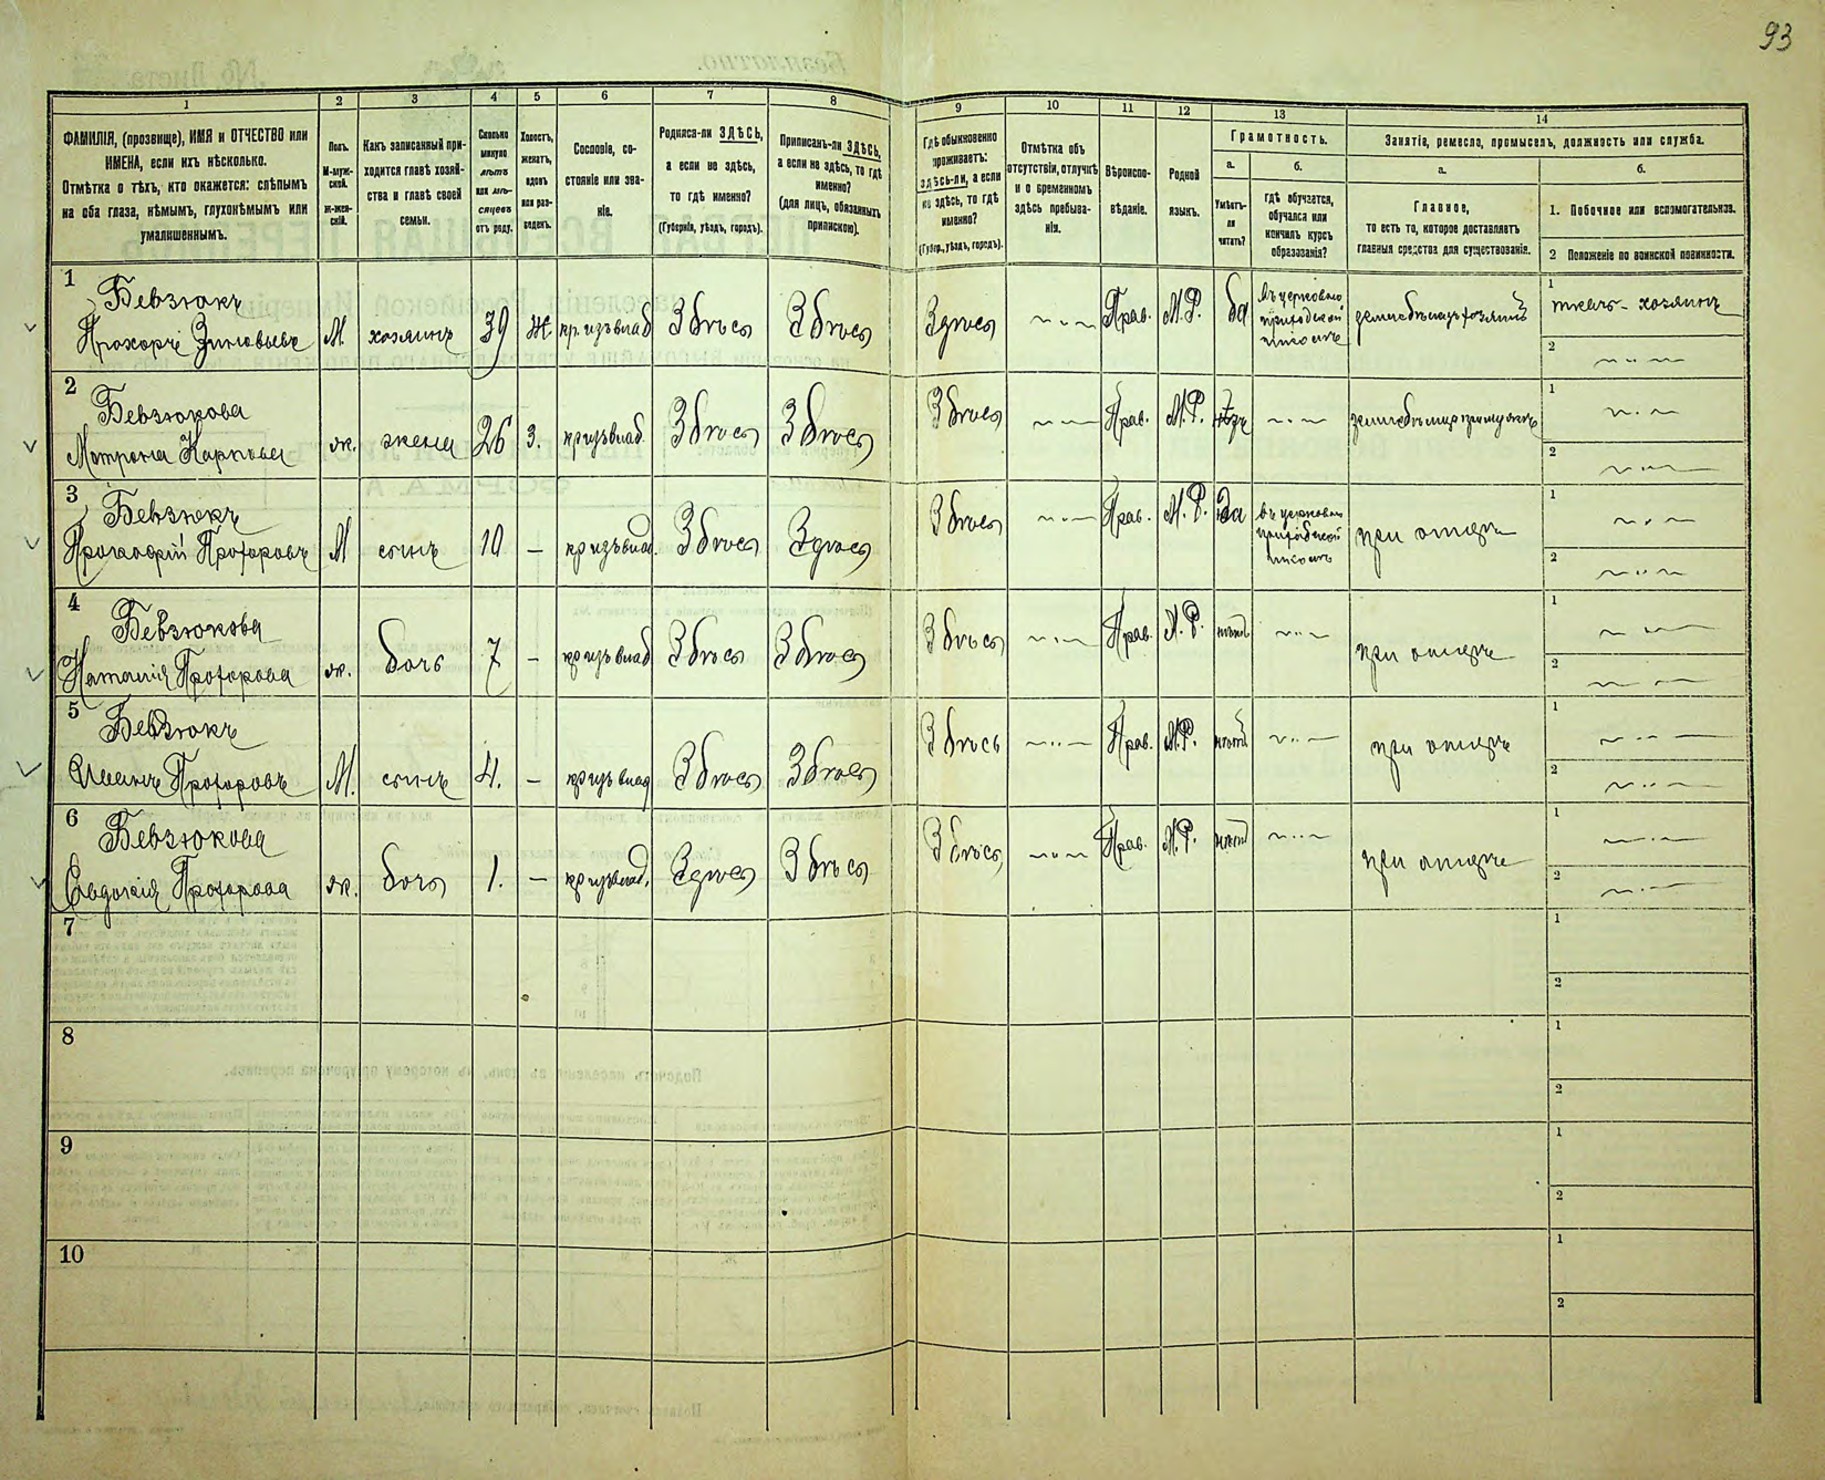 93
1
2
3
4
5
6
7
8
9
10
11
12
13
14
ФАМИЛІЯ, (прозвище), ИМЯ и ОТЧЕСТВО или
ИМЕНА, если ихъ нѣсколько.
Отмѣтка о тѣхъ, кто окажется: слѣпымъ
на оба глаза, нѣмымъ, глухонѣмымъ или
умалишеннымъ.
Полъ.
М-муж-
ской.
ж-жен-
скій.
Какъ записанный при-
ходится главѣ хозяй-
ства и главѣ своей
семьи.
Сколько
минуло
лѣтъ
или мѣ-
сяцевъ
отъ роду.
Холостъ,
женатъ,
вдовъ
или раз-
веденъ.
Сословіе, со-
стояніе или зва-
ніе.
Родился-ли ЗДѢСЬ,
а если не здѣсь,
то гдѣ именно?
(Губернія, уѣздъ, городъ).
Приписанъ-ли ЗДѢСЬ,
а если не здѣсь, то гдѣ
именно?
(для лицъ, обязанныхъ
припискою).
Гдѣ обыкновенно
проживаетъ:
здѣсь-ли, а если
не здѣсь, то гдѣ
именно?
(Губер., уѣздъ, городъ).
Отмѣтка объ
отсутствіи, отлучкѣ
и о временномъ
здѣсь пребыва-
ніи.
Вѣроиспо-
вѣданіе.
Родной
языкъ.
Грамотность.
а.
б.
Умѣетъ-
ли
читать?
гдѣ обучается,
обучался или
кончилъ курсъ
образованія?
Занятіе, ремесло, промыселъ, должность или служба.
а.
б.
Главное,
то есть то, которое доставляетъ
главныя средства для существованія.
1. Побочное или вспомогательное.
2 Положеніе по воинской повинности.
1
Бевзюкъ
Прохоръ Зиновьевъ
М
хозяинъ
39
Ж.
кр. изъ влад
Здѣсь
Здѣсь
Здѣсь
Прав.
М.Р.
да
въ церковно
приходской
школѣ
1
ткачъ - хозяинъ
2
2
Бевзюкова
Матрона Карпова
ж.
жена
26
З.
кр изъ влад.
Здѣсь
Здѣсь
Здѣсь
Прав.
М.Р.
1
2
3
Бевзюкъ
Прокофій Прохоровъ
М
сынъ
10
—
кр изъ влад.
Здѣсь
Здѣсь
Здѣсь
Прав.
М.Р.
да
въ церковно
приходской
школѣ
при отцѣ
1
2
4
Бевзюкова
Наталія Прохорова
ж.
дочь
7
—
кр изъ влад
Здѣсь
Здѣсь
Здѣсь
Прав.
М.Р.
при отцѣ
1
2
5
Бевзюкъ
Иванъ Прохоровъ
М.
сынъ
4.
—
кр изъ влад
Здѣсь
Здѣсь
Здѣсь
Прав.
М.Р.
при отцѣ
1
2
6
Бевзюкова
Евдокія Прохорова
ж.
дочь
1.
—
кр изъ влад.
Здѣсь
Здѣсь
Здѣсь
Прав.
М.Р.
при отцѣ
1
2
7
1
2
8
1
2
9
1
2
10
1
2